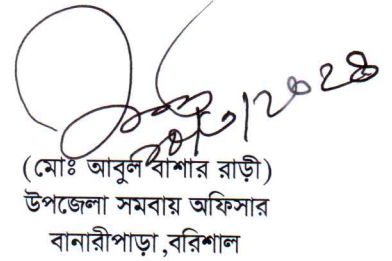 (মোঃ আবুল বাশার রাড়ী)
উপজেলা সমবায় অফিসার
বানারীপাড়া ,বরিশাল